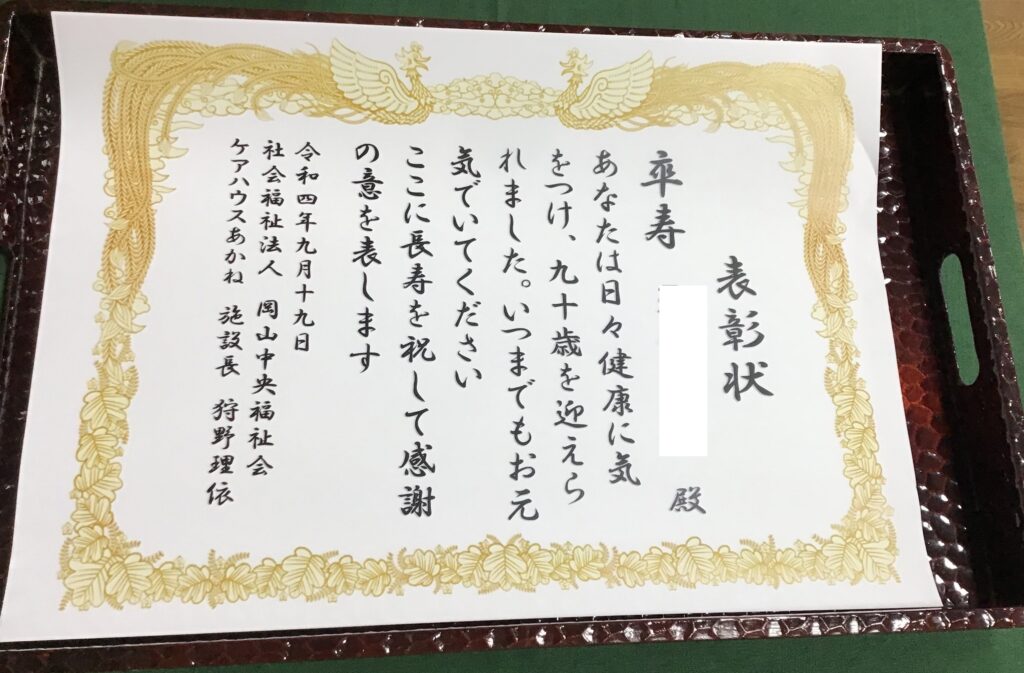 表彰状
卒寿
殿
あなたは日々健康に気
をつけ、九十歳を迎えら
れました。いつまでもお元
気でいてください
ここに長寿を祝して感謝
の意を表します
令和四年九月十九日
社会福祉法人 岡山中央福祉会
ケアハウスあかね 施設長 狩野理依